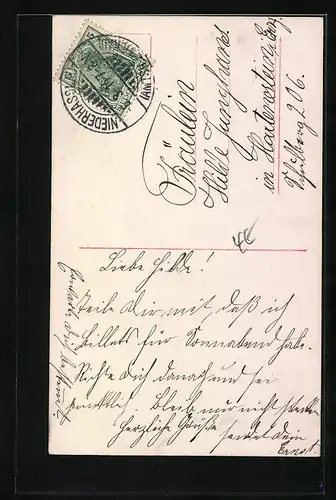 NIEDERHASSL
Fräulein
Hilde Junghans
in Hartenstein i. Erzg.
Schulberg 206.
Liebe Hilde!
teile Dir mit daß ich
Billets für Sonnabend habe.
Richte Dich danach und sei
pünktlich. Bleib nur nicht stecken
Herzliche Grüße
sendet Dein
Ernst.